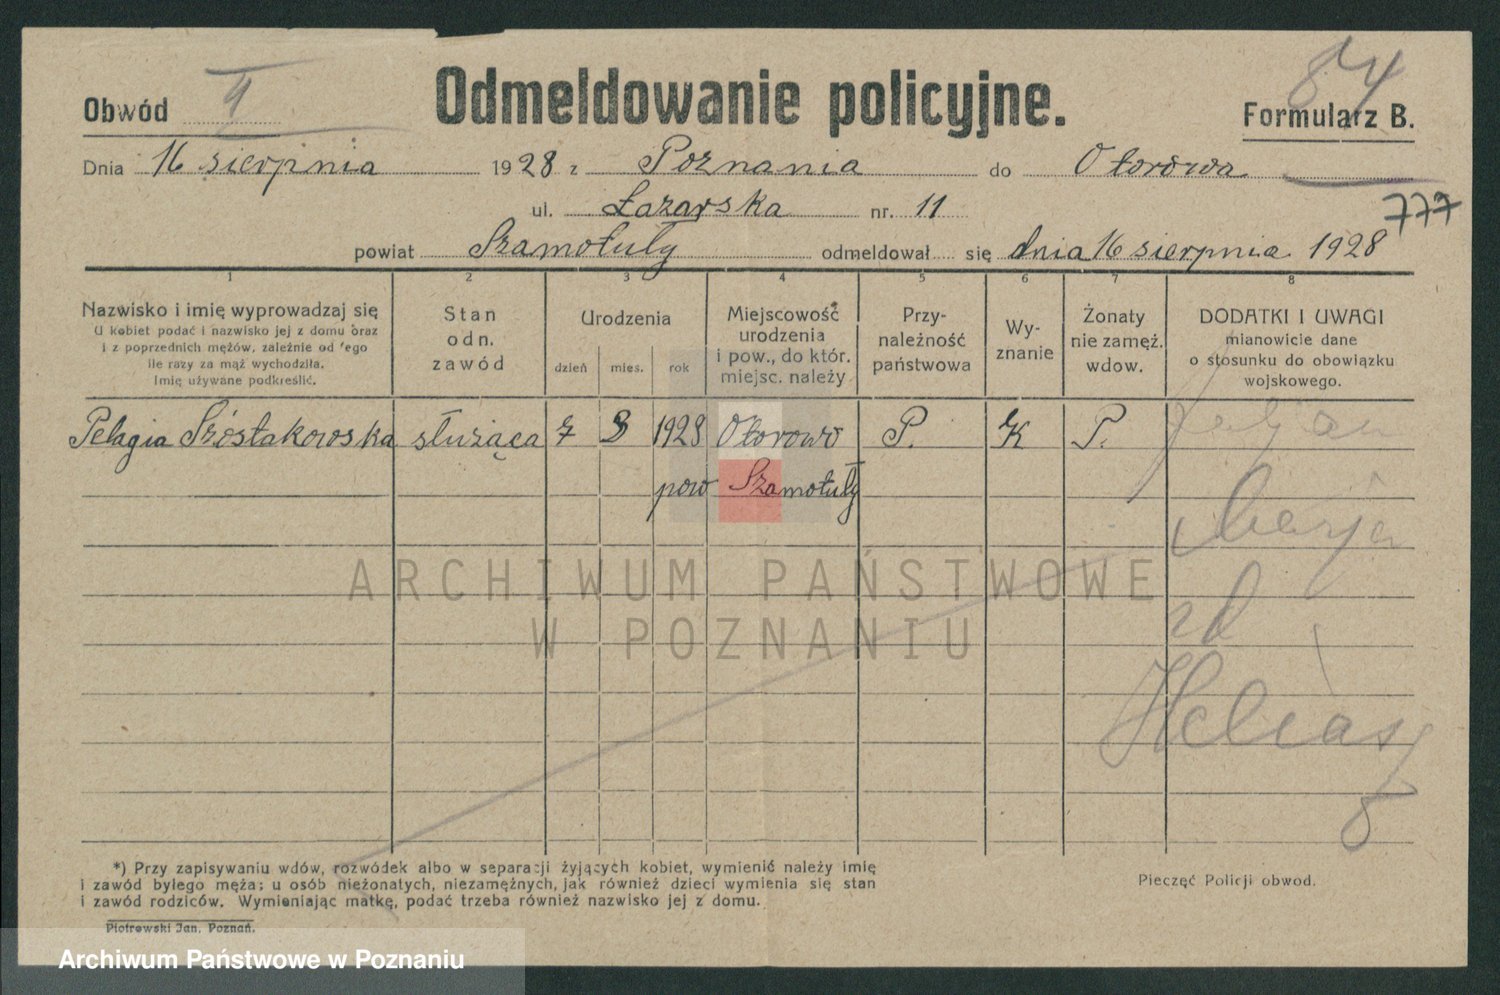 84
Obwód II
Odmeldowanie policyjne.
Formularz B.
Dnia 16 sierpnia 1928 z Poznania do Otorowa
ul. Łazarska nr. 11
777
powiat Szamotuły odmeldował się dnia 16 sierpnia 1928
1 2 3 4 5 6 7 8
Nazwisko i imię wyprowadzaj się
U kobiet podać i nazwisko jej z domu oraz
i z poprzednich mężów, zależnie od tego
ile razy za mąż wychodziła.
Imię używane podkreślić.
Stan
odn.
zawód
Urodzenia
dzień mies. rok
Miejscowość
urodzenia
i pow., do któr.
miejsc. należy
Przy-
należność
państwowa
Wy-
znanie
Żonaty
nie zamęż.
wdow.
DODATKI I UWAGI
mianowicie dane
o stosunku do obowiązku
wojskowego.
Pelagia Szóstakowska służąca 7 3 1928 Otorowo P. K P.
pow Szamotuły
Marja
zd
Heliasz
ARCHIWUM PAŃSTWOWE
W POZNANIU
*) Przy zapisywaniu wdów, rozwódek albo w separacji żyjących kobiet, wymienić należy imię
i zawód byłego męża; u osób nieżonatych, niezamężnych, jak również dzieci wymienia się stan
i zawód rodziców. Wymieniając matkę, podać trzeba również nazwisko jej z domu.
Pieczęć Policji obwod.
Piotrowski Jan, Poznań.
Archiwum Państwowe w Poznaniu